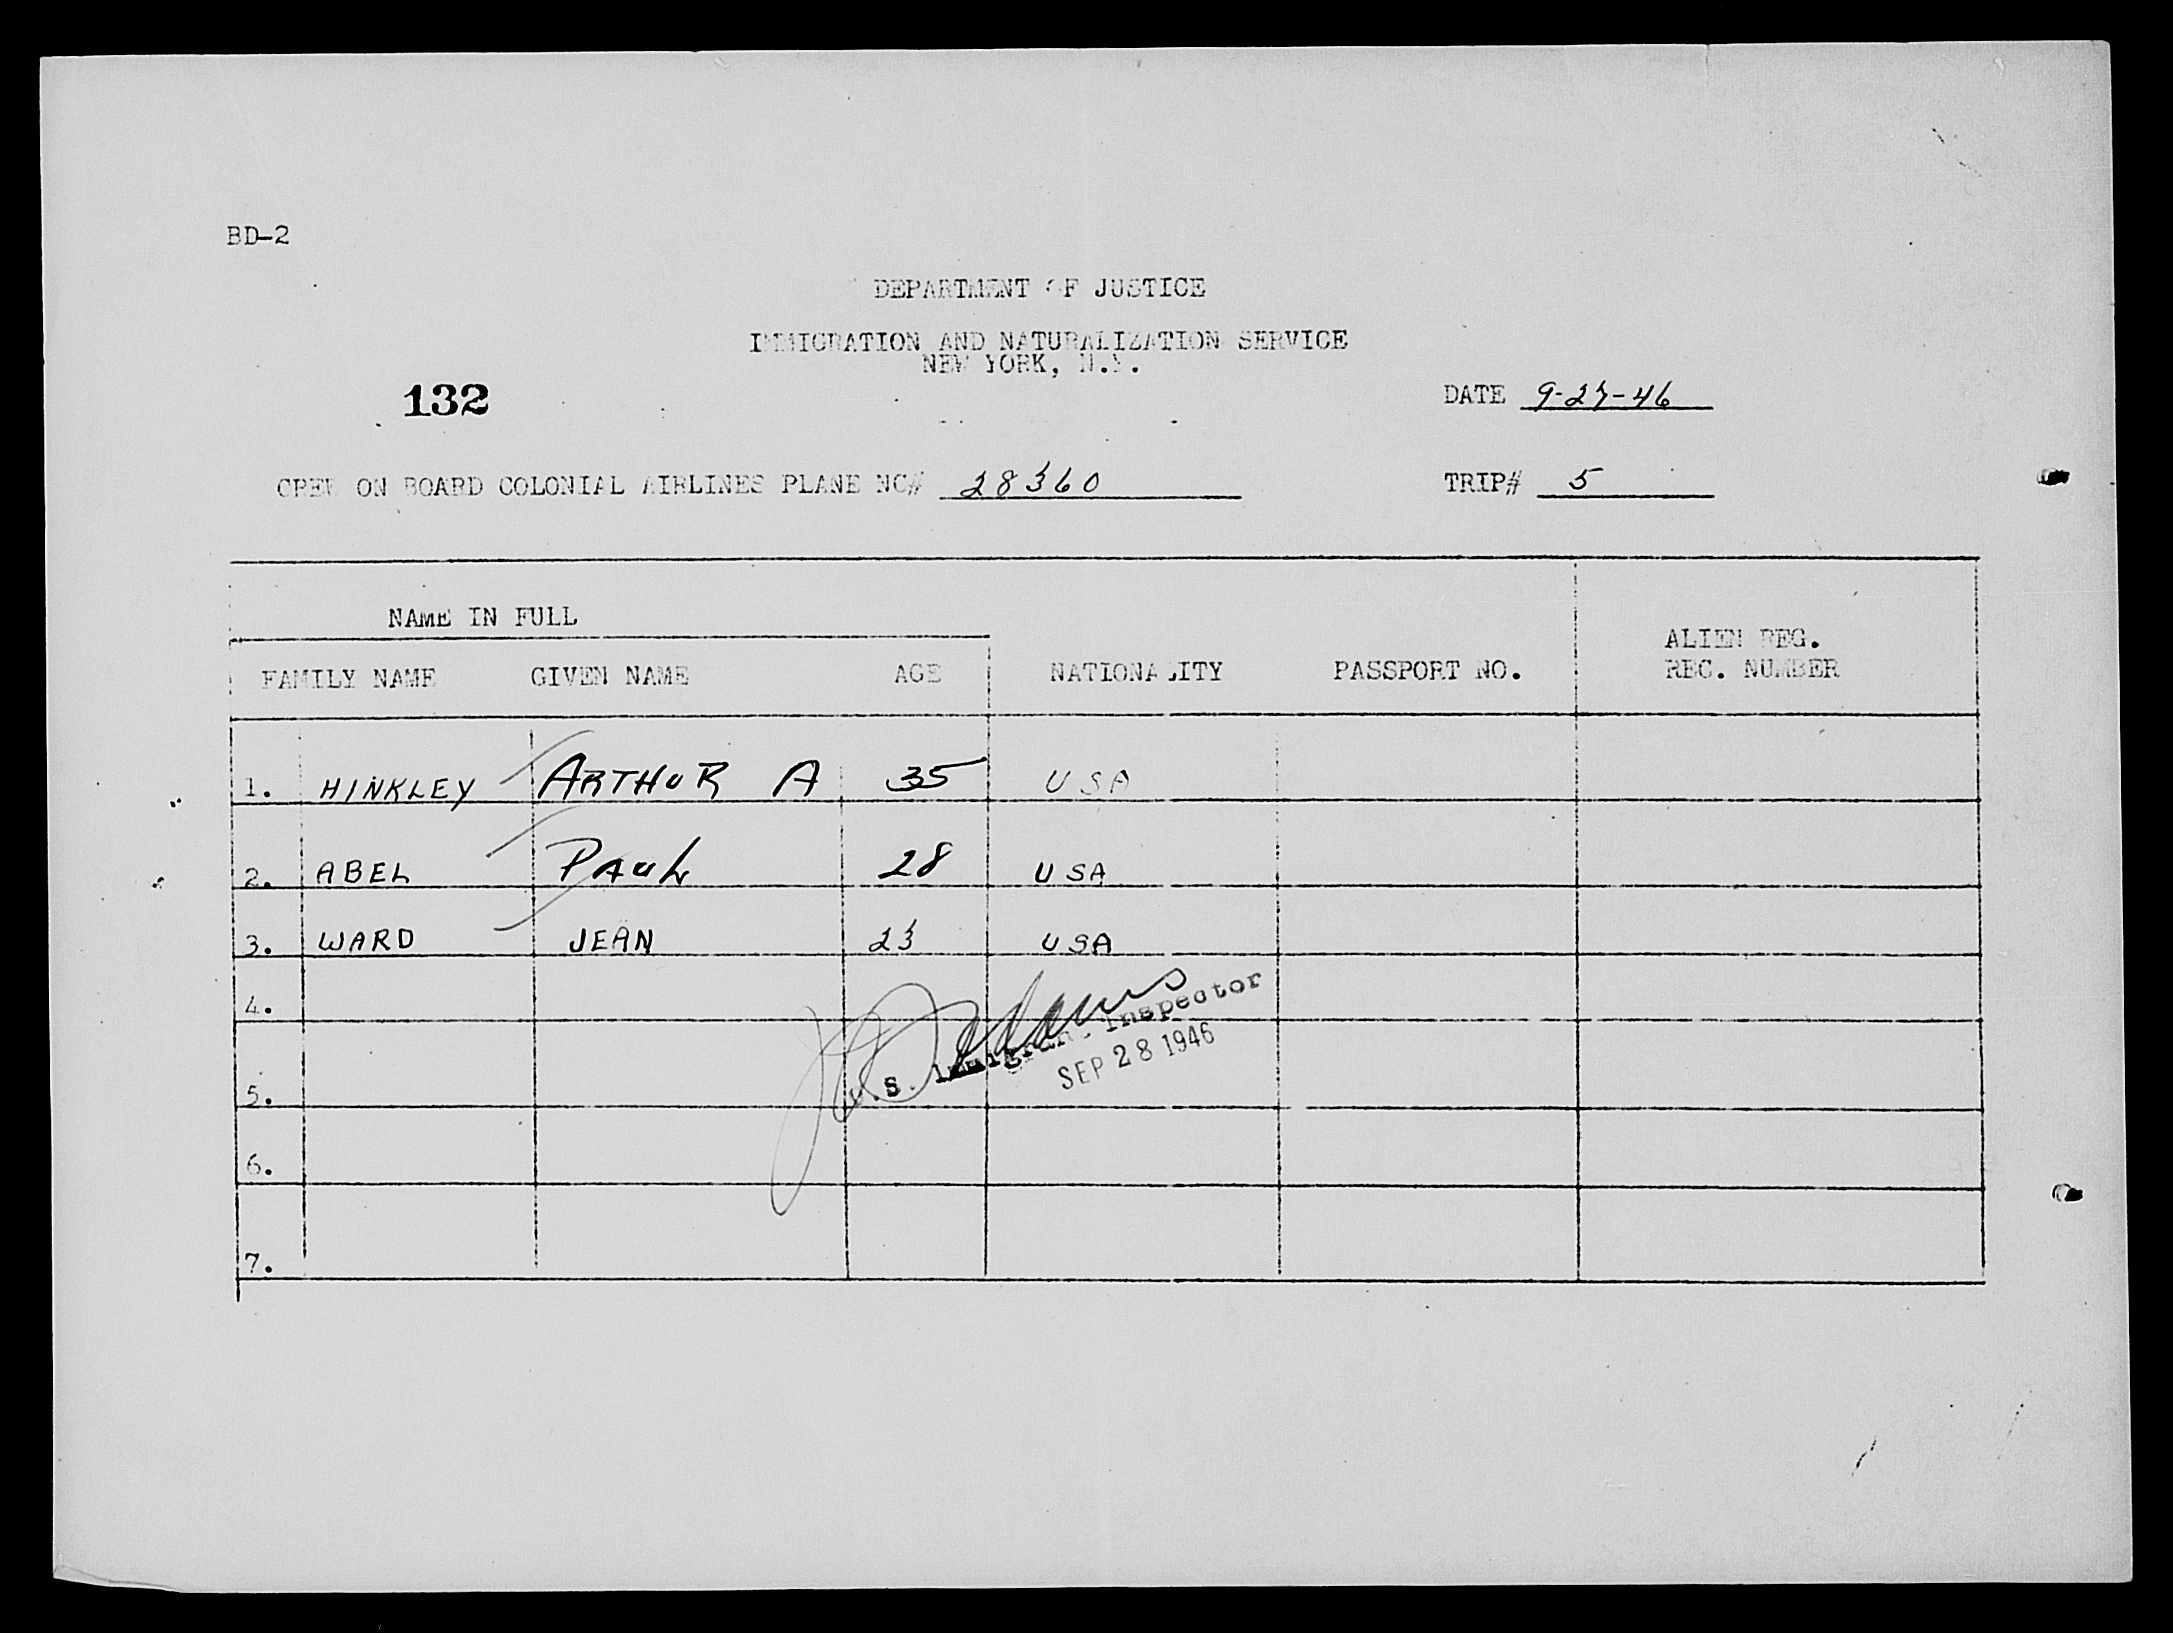 BD-2
DEPARTMENT OF JUSTICE
IMMIGRATION AND NATURALIZATION SERVICE
NEW YORK, N.Y.
132
DATE 9-27-46
CREW ON BOARD COLONIAL AIRLINES PLANE NC# 28360 TRIP# 5
NAME IN FULL
FAMILY NAME GIVEN NAME AGE NATIONALITY PASSPORT NO. ALIEN REG.
REC. NUMBER
1. HINKLEY ARTHUR A 35 USA
2. ABEL PAUL 28 USA
3. WARD JEAN 23 USA
4.
U.S. Immigrant Inspector
SEP 28 1946
5.
6.
7.